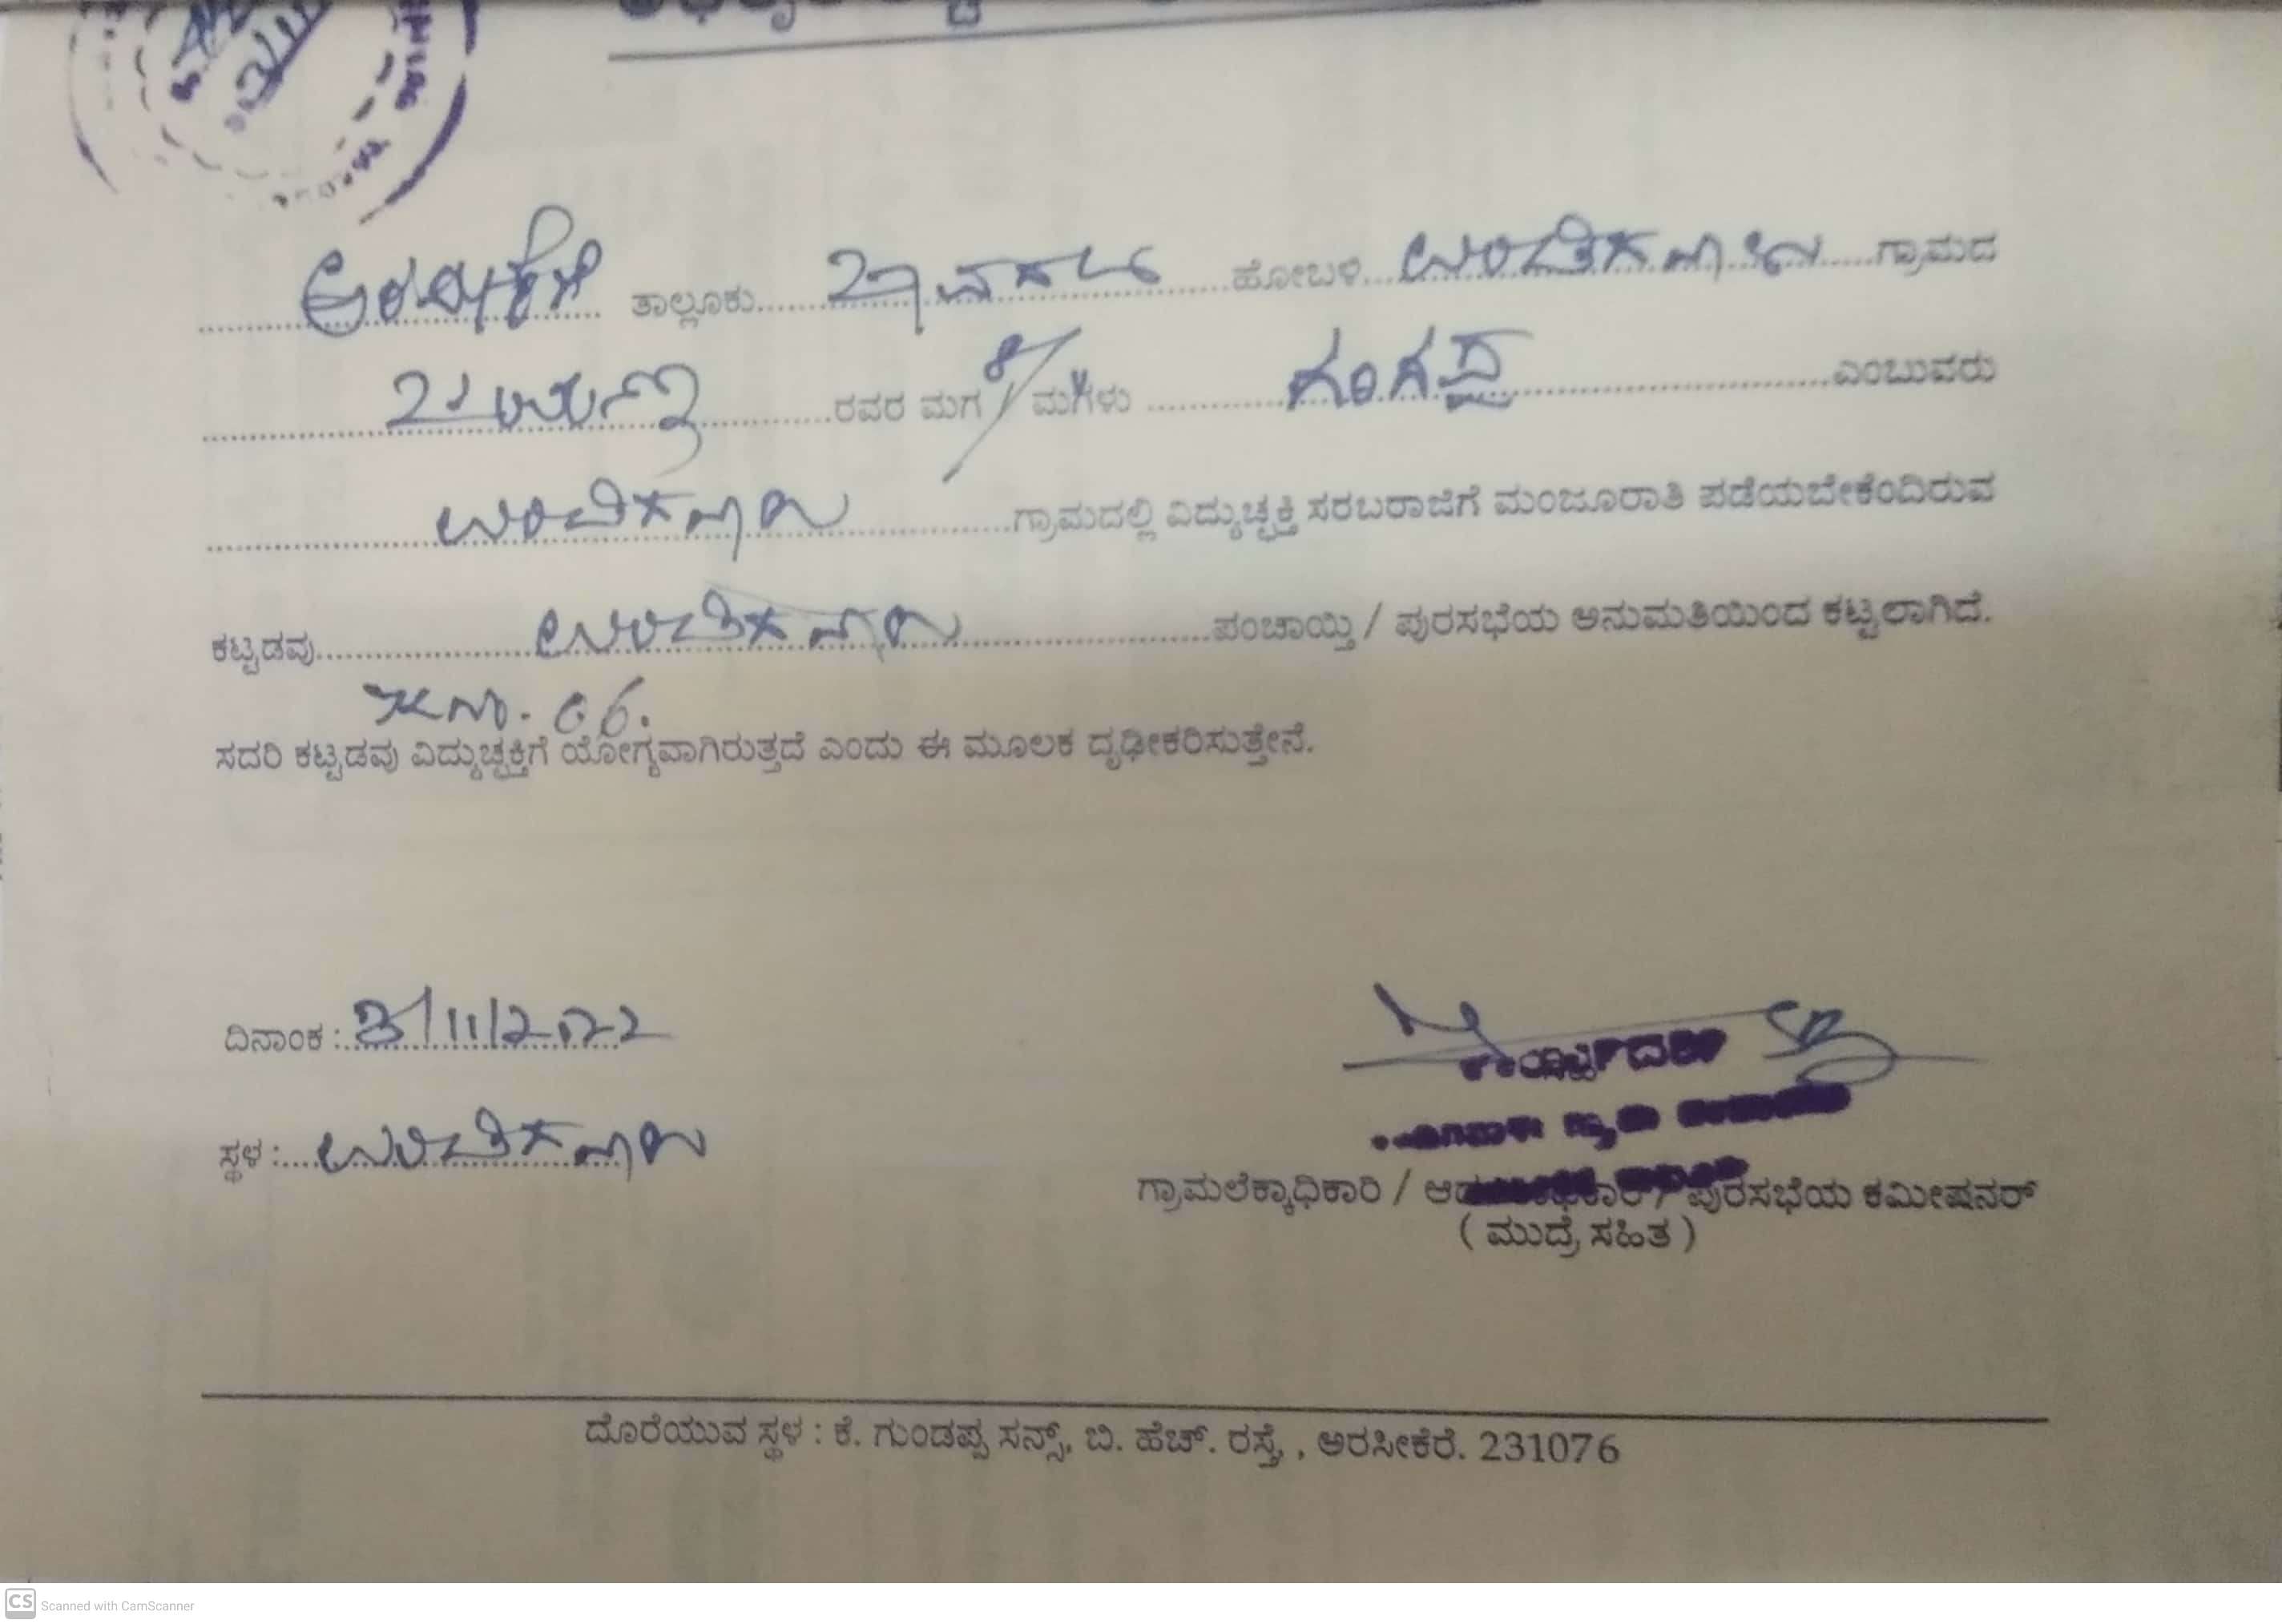 ಅರಸೀಕೆರೆ ತಾಲ್ಲೂಕು ಜಾವಗಲ್ ಹೋಬಳಿ ಉಂಡಿಗನಾಳು ಗ್ರಾಮದ
ರವರ ಮಗ / ಮಗಳು ಗಂಗಪ್ಪ ಎಂಬುವರು
ಉಂಡಿಗನಾಳು ಗ್ರಾಮದಲ್ಲಿ ವಿದ್ಯುಚ್ಛಕ್ತಿ ಸರಬರಾಜಿಗೆ ಮಂಜೂರಾತಿ ಪಡೆಯಬೇಕೆಂದಿರುವ
ಕಟ್ಟಡವು ಉಂಡಿಗನಾಳು ಪಂಚಾಯ್ತಿ / ಪುರಸಭೆಯ ಅನುಮತಿಯಿಂದ ಕಟ್ಟಲಾಗಿದೆ.
06.
ಸದರಿ ಕಟ್ಟಡವು ವಿದ್ಯುಚ್ಛಕ್ತಿಗೆ ಯೋಗ್ಯವಾಗಿರುತ್ತದೆ ಎಂದು ಈ ಮೂಲಕ ದೃಢೀಕರಿಸುತ್ತೇನೆ.
ದಿನಾಂಕ : 3/11/2022
ಸ್ಥಳ : ಉಂಡಿಗನಾಳು
ಗ್ರಾಮಲೆಕ್ಕಾಧಿಕಾರಿ / ಪುರಸಭೆಯ ಕಮೀಷನರ್
( ಮುದ್ರೆ ಸಹಿತ )
ದೊರೆಯುವ ಸ್ಥಳ : ಕೆ. ಗುಂಡಪ್ಪ ಸನ್ಸ್, ಬಿ. ಹೆಚ್. ರಸ್ತೆ, , ಅರಸೀಕೆರೆ. 231076
CS Scanned with CamScanner